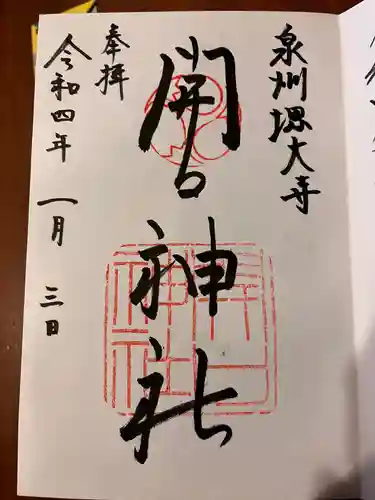 泉州堺大寺
開口神社
奉拝
令和四年 一月 三日
開口
神社